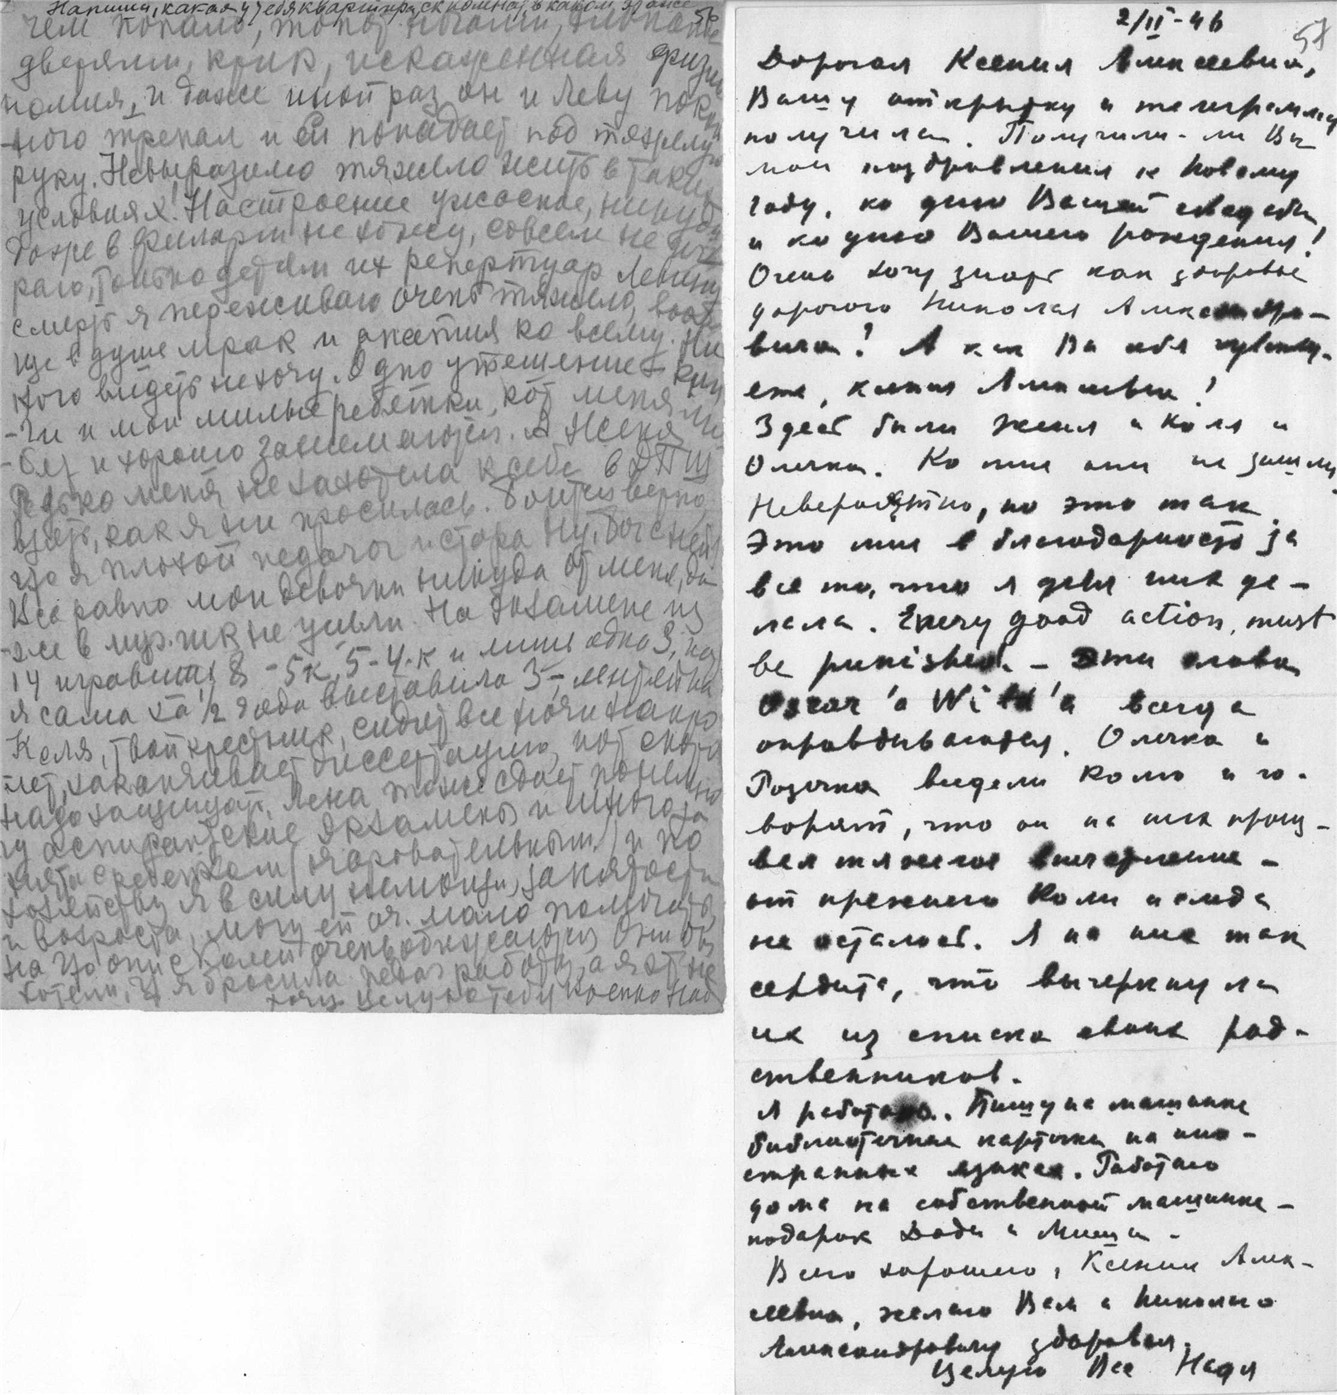 Напиши, какая у тебя квартира, ск. комнат, в каком этаже
56
чем попало, топот ногами, хлопанье
дверями, крик, искаженная физио
номия, и даже иной раз он и Леву
-ного трепал и ей попадает под тяжелую
руку. Невыразимо тяжело жить в таких
условиях! Настроение ужасное, никуда
даже в филарм не хожу, совсем не иг
раю, только детям их репертуар Левину
смерть я переживаю очень тяжело, вооб
ще в душе мрак и апатия ко всему. Ни
кого видеть не хочу. Одно утешение кни
-ги и мои милые ребятки, кот меня лю
-бят и хорошо занимаются. А Женя
Редько меня не захотела к себе в
взять, как я ни просилась. Боится верно,
что я плохой педагог и стара Ну, Бог с ней
Все равно мои девочки никуда от меня, да
-же в муз. шк не ушли. На экзамене из
14 игравших 8 - 5к, 5-4-к и лишь одно 3,
я сама за ½ года выставила 3-,
Коля, твой крестник, сидит все ночи
лет, заканчивает диссертацию, кот скоро
надо защищать. Лена тоже сдает
аспирантские экзамены и много
с ребенком (очаровательным) и по
хозяйству я в силу немощи, занятости
и возраста, могу ей оч. мало помогать,
на что они с Колей очень обижаются Они бы
хотели, чт я бросила педаг работу, а я эт не
хочу Целую тебя крепко Надя

2/II-46
57
Дорогая Ксения Алексеевна,
Вашу открытку и телеграмму
получила. Получили-ли Вы
мои поздравления к Новому
году, ко дню Вашей свадьбы
и ко дню Вашего рождения!
Очень хочу знать как здоровье
дорогого Николая Александро-
вича! А как Вы себя чувству-
ете, Ксения Алексеевна!
Здесь были Женя и Коля и
Олечка. Ко мне они не зашли
Невероятно, но это так
Это мне в благодарность за
все то, что я для них де-
лала. Every good action, must
be punished. - Эти слова
Oscar'a Wild'a всегда
оправдываются. Олечка и
Розочка видели Колю и го-
ворят, что он на них произ-
вел тяжелое впечатление -
от прежнего Коли и следа
не осталось. Я на них так
сердита, что вычеркнула
их из списка своих род-
ственников.
Я работаю. Пишу на машинке
библиотечные карточки на ино-
странных языках. Работаю
дома на собственной машинке -
подарок Дади и Миши -
Всего хорошего, Ксения Алек-
сеевна, желаю Вам и Николаю
Александровичу здоровья.
Целую Вас Надя